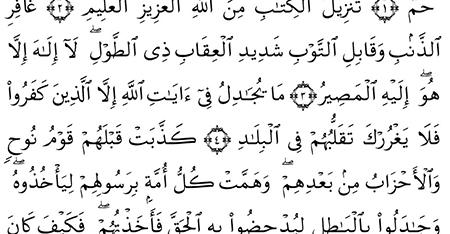 حمٓ ﴿١﴾ تَنزِيلُ ٱلْكِتَٰبِ مِنَ ٱللَّهِ ٱلْعَزِيزِ ٱلْعَلِيمِ ﴿٢﴾ غَافِرِ
ٱلذَّنۢبِ وَقَابِلِ ٱلتَّوْبِ شَدِيدِ ٱلْعِقَابِ ذِى ٱلطَّوْلِ ۖ لَآ إِلَٰهَ إِلَّا
هُوَ ۖ إِلَيْهِ ٱلْمَصِيرُ ﴿٣﴾ مَا يُجَٰدِلُ فِىٓ ءَايَٰتِ ٱللَّهِ إِلَّا ٱلَّذِينَ كَفَرُوا۟
فَلَا يَغْرُرْكَ تَقَلُّبُهُمْ فِى ٱلْبِلَٰدِ ﴿٤﴾ كَذَّبَتْ قَبْلَهُمْ قَوْمُ نُوحٍ
وَٱلْأَحْزَابُ مِنۢ بَعْدِهِمْ ۖ وَهَمَّتْ كُلُّ أُمَّةٍۭ بِرَسُولِهِمْ لِيَأْخُذُوهُ ۖ
وَجَٰدَلُوا۟ بِٱلْبَٰطِلِ لِيُدْحِضُوا۟ بِهِ ٱلْحَقَّ فَأَخَذْتُهُمْ ۖ فَكَيْفَ كَانَ